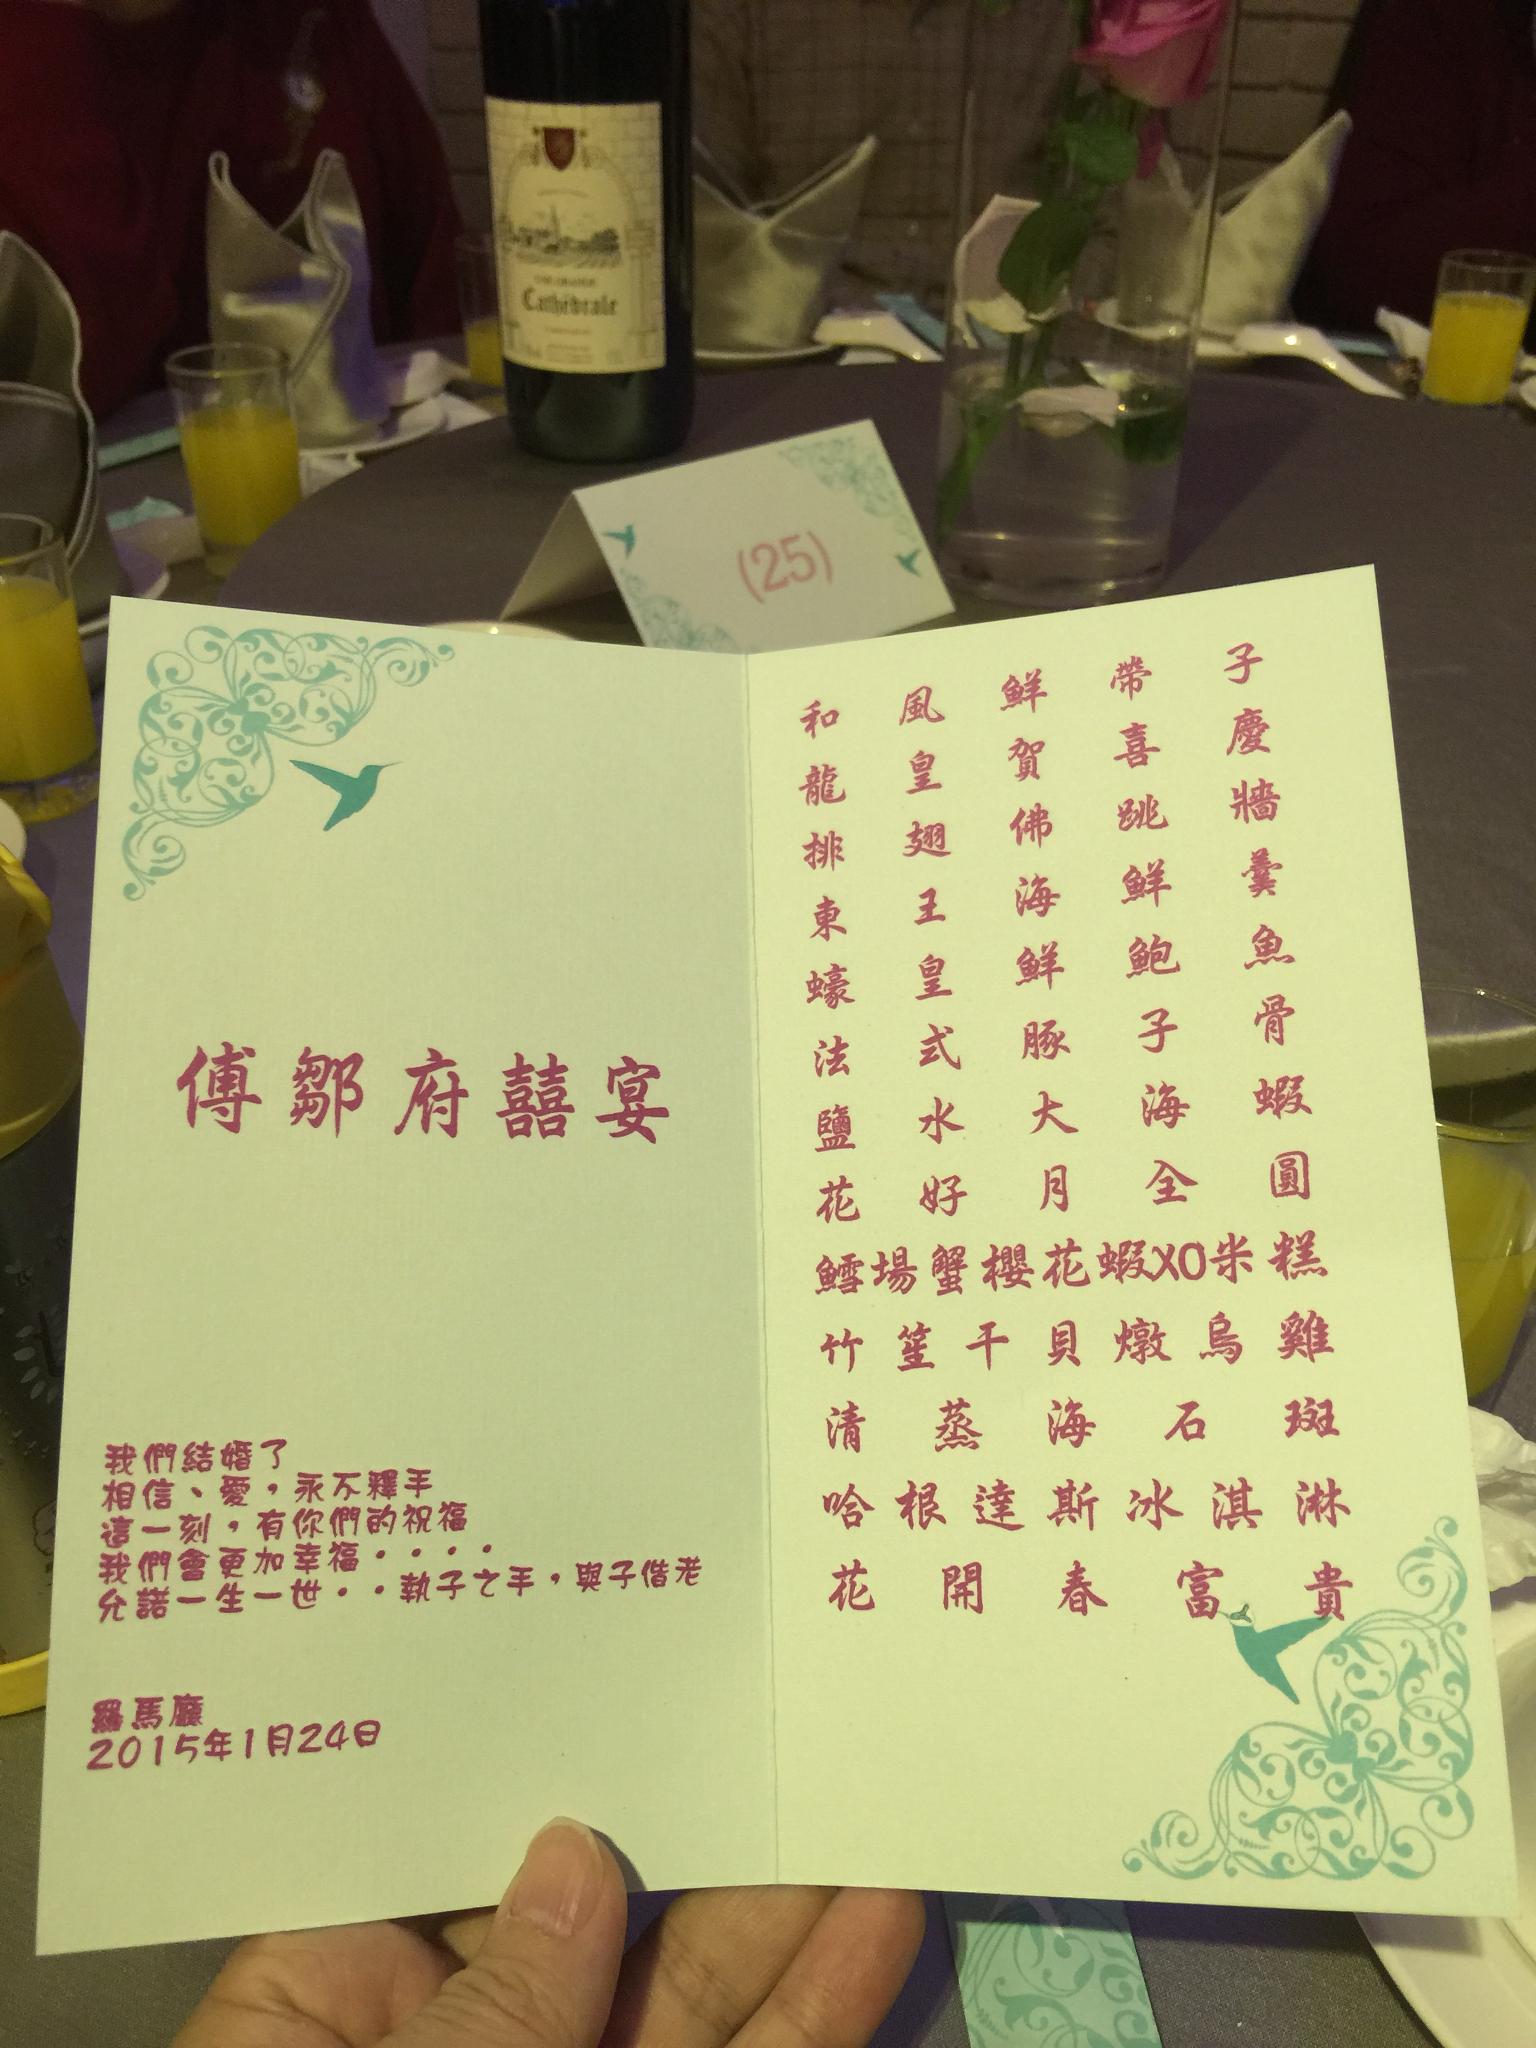 Cathédrale
(25)
傅鄒府囍宴
我們結婚了
相信、愛，永不釋手
這一刻，有你們的祝福
我們會更加幸福....
允諾一生一世..執子之手，與子偕老
羅馬廳
2015年1月24日
和風鮮帶子
龍皇賀喜慶
排翅佛跳牆
東王海鮮羹
蠔皇鮮鮑魚
法式豚子骨
鹽水大海蝦
花好月全圓
鱈場蟹櫻花蝦XO米糕
竹笙干貝燉烏雞
清蒸海石斑
哈根達斯冰淇淋
花開春富貴